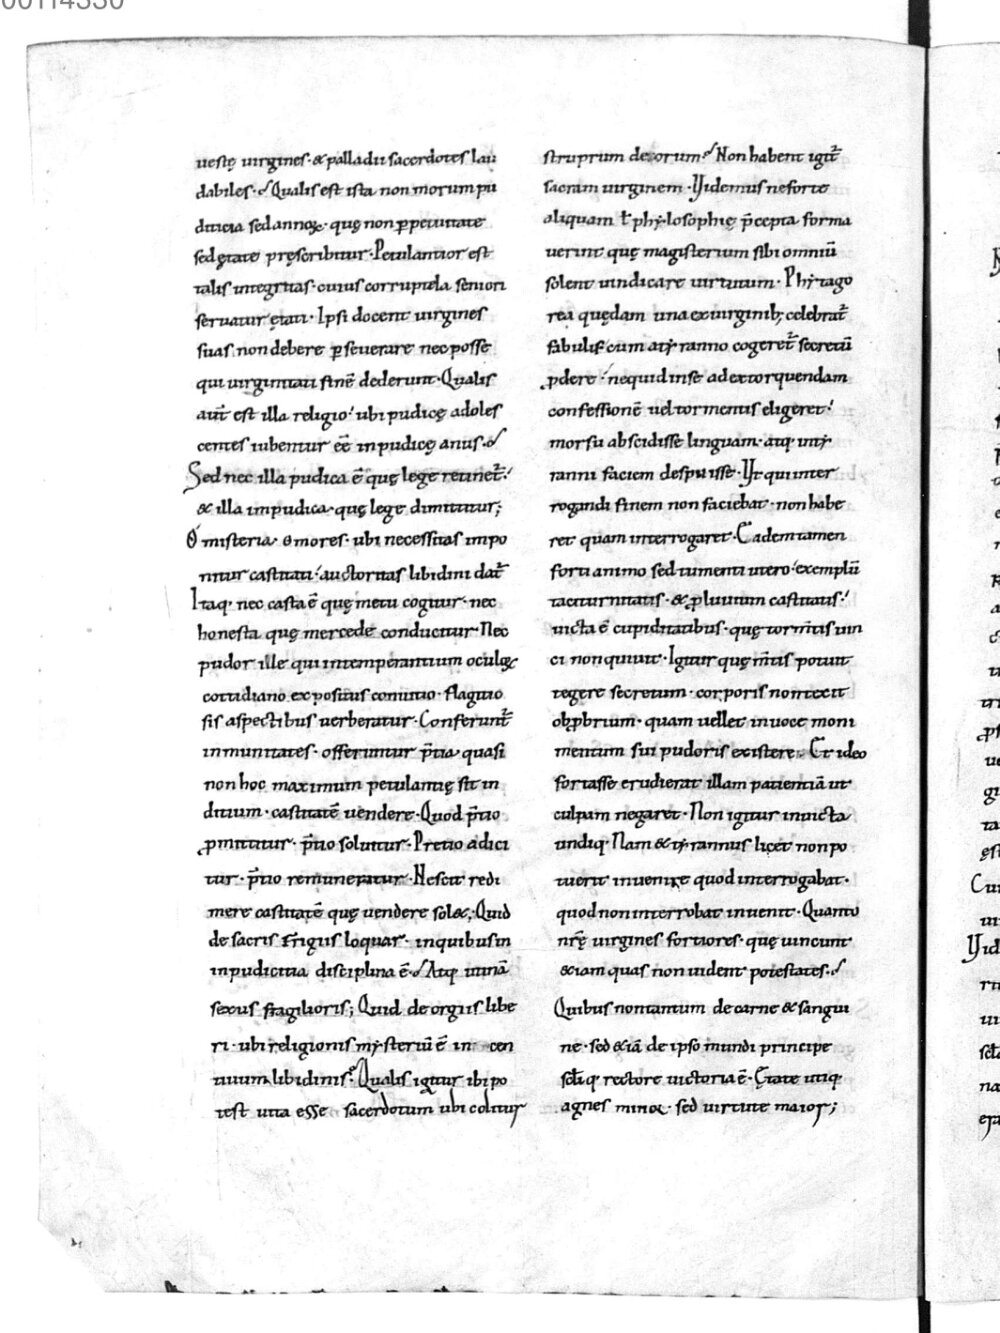 00114330
uestę uirgines · & palladii sacerdotes lau
dabiles · Qualis est ista non morum pu
dicicia sed annoꝝ · quę non ꝑpetuitate
sed ętate pręscribitur · Petulantior est
talis integritas · cuius corruptela seniori
seruatur ętati · Ipsi docent uirgines
suas non debere ꝑseuerare nec posse
qui uirginitati finē dederunt · Qualis
aut̄ est illa religio · ubi pudicę adoles
centes iubentur eē inpudicę anus ·
Sed nec illa pudica ē quę lege retinet̄ ·
& illa impudica quę lege dimittitur;
O misteria o mores · ubi necessitas impo
nitur castitati · auctoritas libidini dat̄
Itaq · nec casta ē quę metu cogitur · nec
honesta quę mercede conducitur · Nec
pudor ille qui intemperantium oculoꝝ
cottidiano expositus conuitio · flagitio
sis aspectibus uerberatur · Conferunt̄
inmunitates · offeruntur p̄tia quasi
non hoc maximum petulantię sit in
ditium · castitatē uendere · Quod p̄tio
ꝓmittitur · p̄tio soluitur · Pretio adici
tur · p̄tio remuneratur · Nescit redi
mere castitatē quę uendere sol&; Quid
de sacris frigiis loquar · in quibus in
inpudicitia disciplina ē · Atq utinā
sexus fragilioris; Quid de orgiis libe
ri · ubi religionis mẏsteriū ē in cen
tiuum libidinis · Qualis igitur ibi po
test uita esse sacerdotum ubi colitur
struprum deorum · Non habent igit̄
sacram uirginem · Videmus ne forte
aliquam ł phẏlosophię p̄cepta forma
uerint quę magisterium sibi omniū
solent uindicare uirtutum · Phẏtago
rea quędam una ex uirginib; celebrat̄
fabulis cum a tẏranno coger&̄ secretū
ꝓdere · ne quid in se ad extorquendam
confessionē uel tormentis eliger& ·
morsu abscidisse linguam · atq in tẏ
ranni faciem despuisse · Vt qui inter
rogandi finem non faciebat · non habe
ret quam interrogaret · Eadem tamen
forti animo sed tumenti utero · exemplū
taciturnitatis · & ꝓluuium castitatis ·
uicta ē cupiditatibus · quę tormtis uin
ci non quiuit · Igitur quę mtis potuit
tegere secretum · corporis non texit
obꝓbrium · quam uellet in uoce moni
mentum sui pudoris existere · Et ideo
fortasse erudierat illam patientiā ut
culpam negaret · Non igitur inuicta
undiq · Nam & tẏrannus licet non po
tuerit inuenire quod interrogabat ·
quod non interrobat inuenit · Quanto
nr̄ę uirgines fortiores · quę uincunt
&iam quas non uident potestates ·
Quibus non tantum de carne & sangui
ne · sed &iā de ipso mundi principe
scłiq · rectore uictoria ē · Ętate utiq
agnes minor · sed uirtute maior;